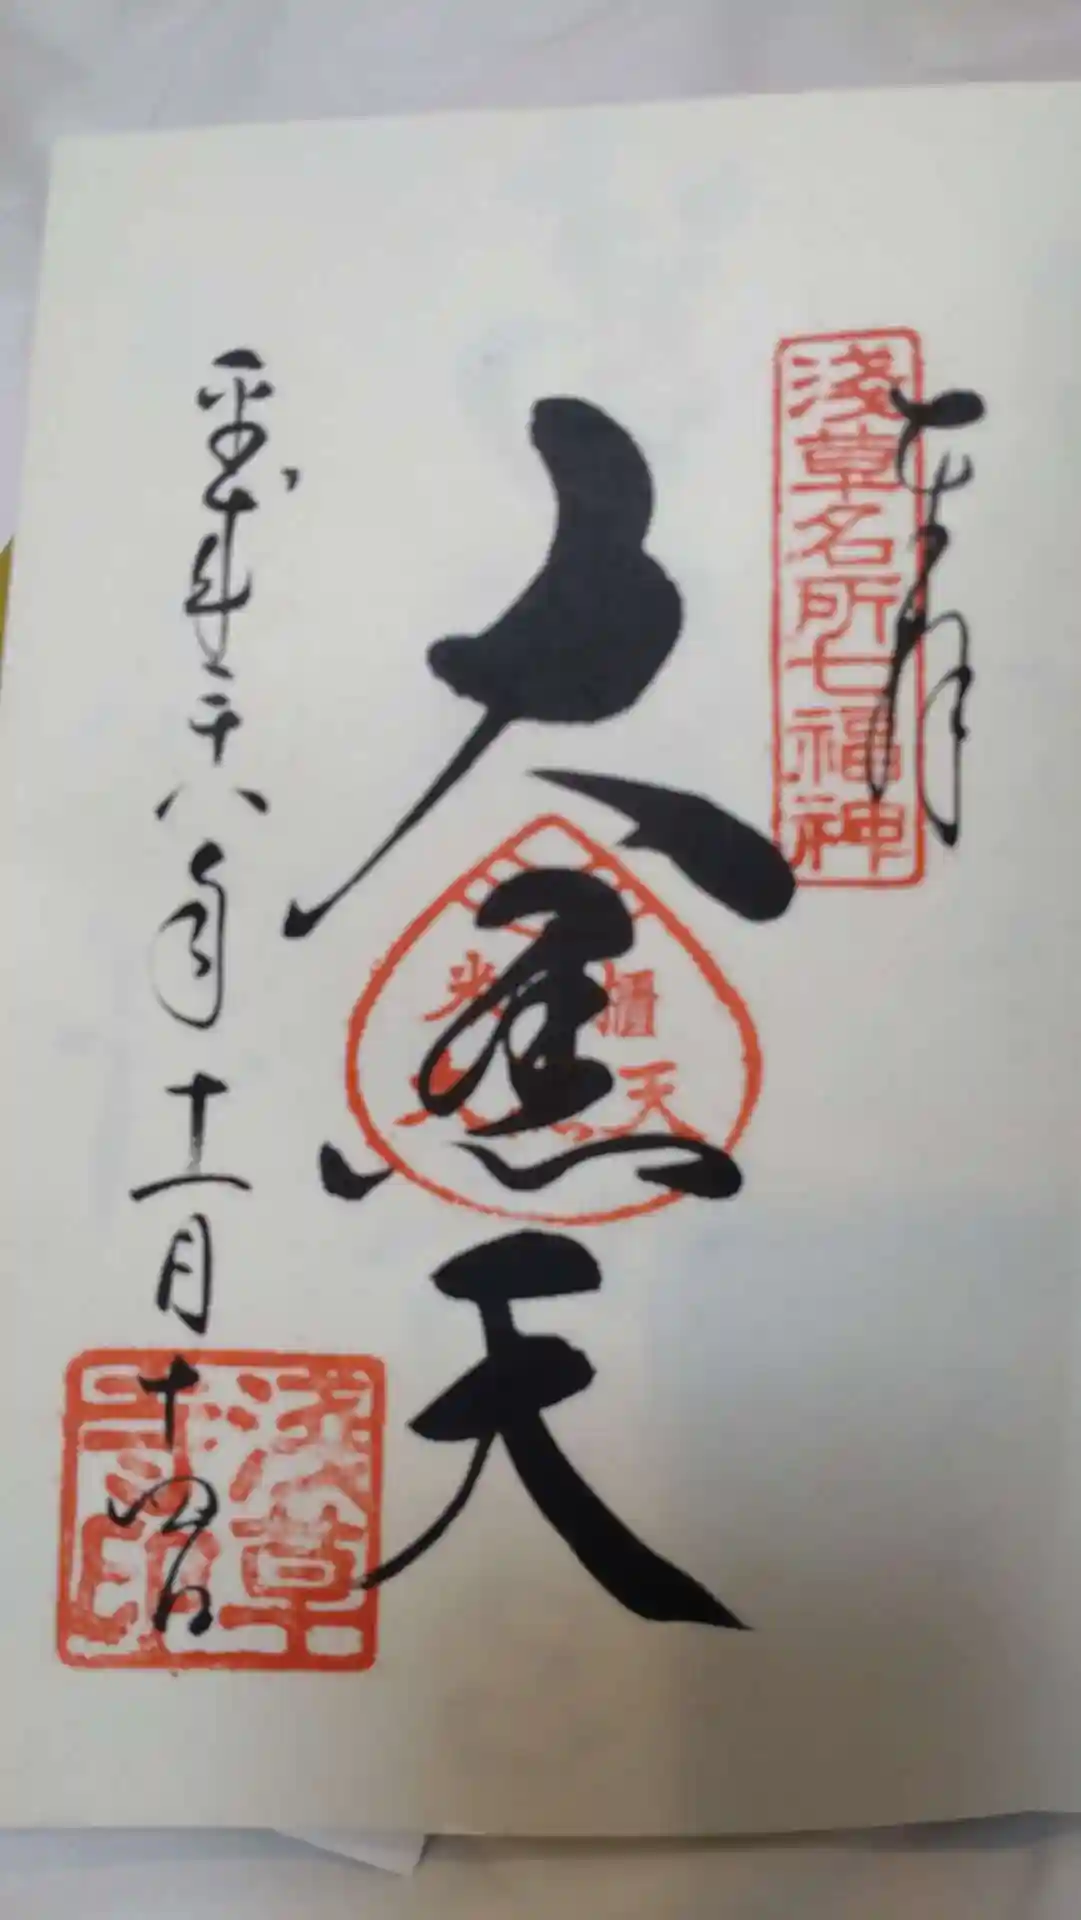 奉拝
淺草名所七福神
大黒天
米櫃
大 天
平成二十八年十一月十四日
淺草寺印